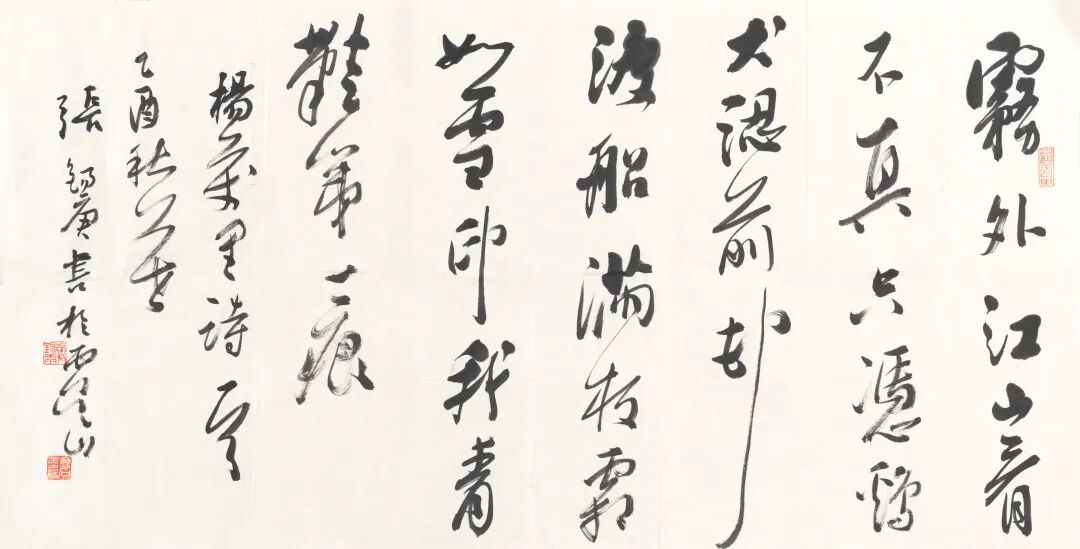 霧外江山看
不真只憑鷄
犬認前邨
渡船滿板霜
如雪印我青
鞋第一痕
楊萬里詩一首
乙酉秋
張錫庚書於山